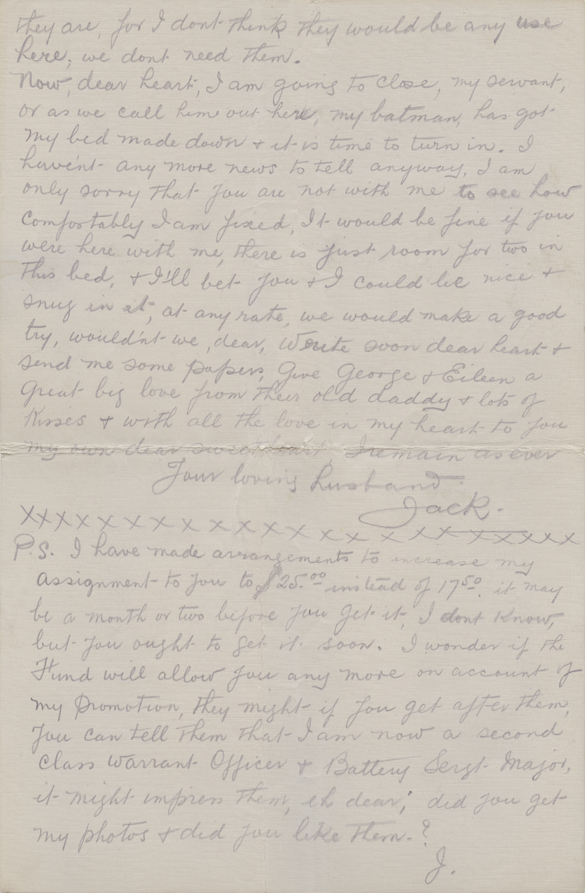 they are, for I dont think they would be any use
here, we dont need them.
Now, dear heart, I am going to close, my servant,
or as we call him out here, my batman, has got
my bed made down & it is time to turn in. I
haven't any more news to tell anyway, I am
only sorry that you are not with me to see how
comfortably I am fixed, It would be fine if you
were here with me, there is just room for two in
this bed, & I'll bet you & I could be nice &
snug in it, at any rate, we would make a good
try, would'nt we, dear, Write soon dear heart &
send me some papers Give George & Eileen a
great big love from their old daddy & lots of
Kisses & with all the love in my heart to you
my own dear sweetheart I remain as ever
Your loving husband
Jack.
XXXXXXXXXXXXXXXXXXXXXXXXX
P.S. I have made arrangements to increase my
assignment to you to $25.00 instead of 17.50, it may
be a month or two before you get it, I dont Know,
but you ought to get it soon. I wonder if the
Fund will allow you any more on account of
my Promotion, they might if you get after them,
You can tell them that I am now a second
class Warrant Officer & Battery Sergt. Major,
it might impress them, eh dear, did you get
my photos & did you like them-?
J.